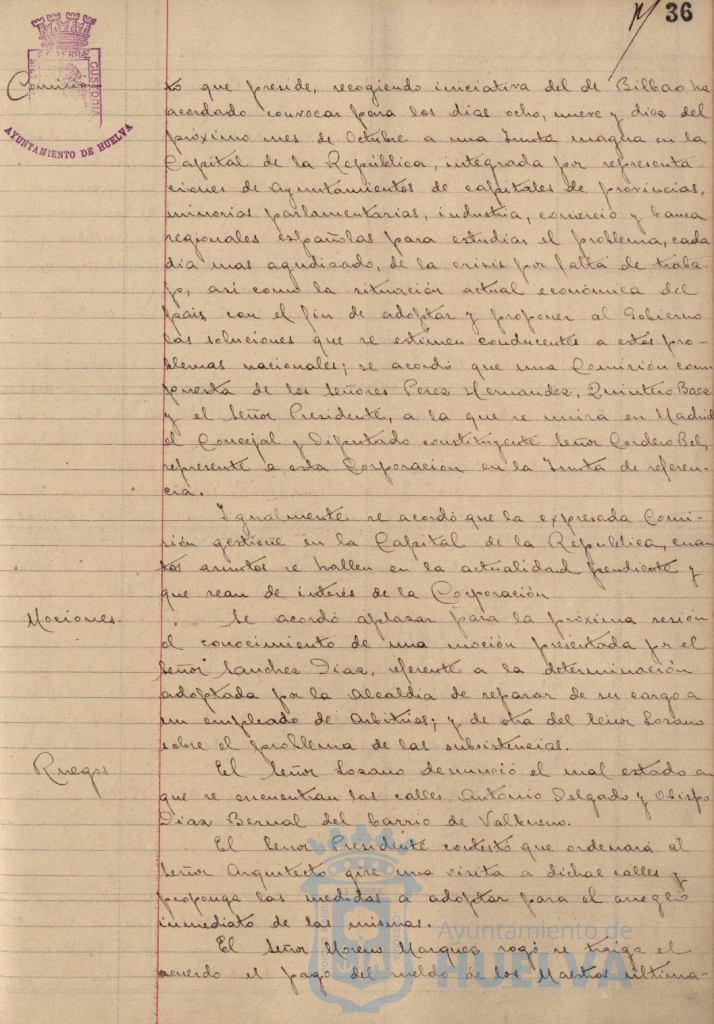 36
CUSTODIA
AYUNTAMIENTO DE HUELVA
Comisión
to que preside, recogiendo iniciativa del de Bilbao ha
acordado convocar para los dias ocho, nueve y diez del
próximo mes de Octubre a una Junta magna en la
Capital de la República, integrada por representa
ciones de Ayuntamientos de capitales de provincias,
minorias parlamentarias, industria, comercio y banca
regionales españolas para estudiar el problema, cada
dia mas agudizado, de la crisis por falta de traba-
jo, asi como la situación actual económica del
pais con el fin de adoptar y proponer al Gobierno
las soluciones que se estimen conducentes a estos pro-
blemas nacionales; se acordó que una Comisión com
puesta de los Señores Perez Hernandez, Quintero Baez
y el Señor Presidente, a la que se unirá en Madrid
el Concejal y Diputado constituyente Señor Cordero Bel,
represente a esta Corporación en la Junta de referen-
cia.
Igualmente se acordó que la expresada Comi-
sión gestione en la Capital de la Republica, cuan
tos asuntos se hallen en la actualidad pendiente y
que sean de interés de la Corporación
Mociones.
Se acordó aplazar para la próxima sesión
el conocimiento de una moción presentada por el
Señor Sanchez Diaz, referente a la determinación
adoptada por la Alcaldia de separar de su cargo a
un empleado de Arbitrios; y de otra del Señor Lozano
sobre el problema de las subsistencias.
Ruegos
El Señor Lozano denunció el mal estado en
que se encuentran las calles Antonio Delgado y Obispo
Diaz Bernal del barrio de Valbueno.
El Señor Presidente contestó que ordenará al
Señor Arquitecto gire una visita a dichas calles y
proponga las medidas a adoptar para el arreglo
inmediato de las mismas.
El Señor Moreno Marquez rogó se traiga el
acuerdo el pago del sueldo de los Maestros última-
Ayuntamiento de
HUELVA